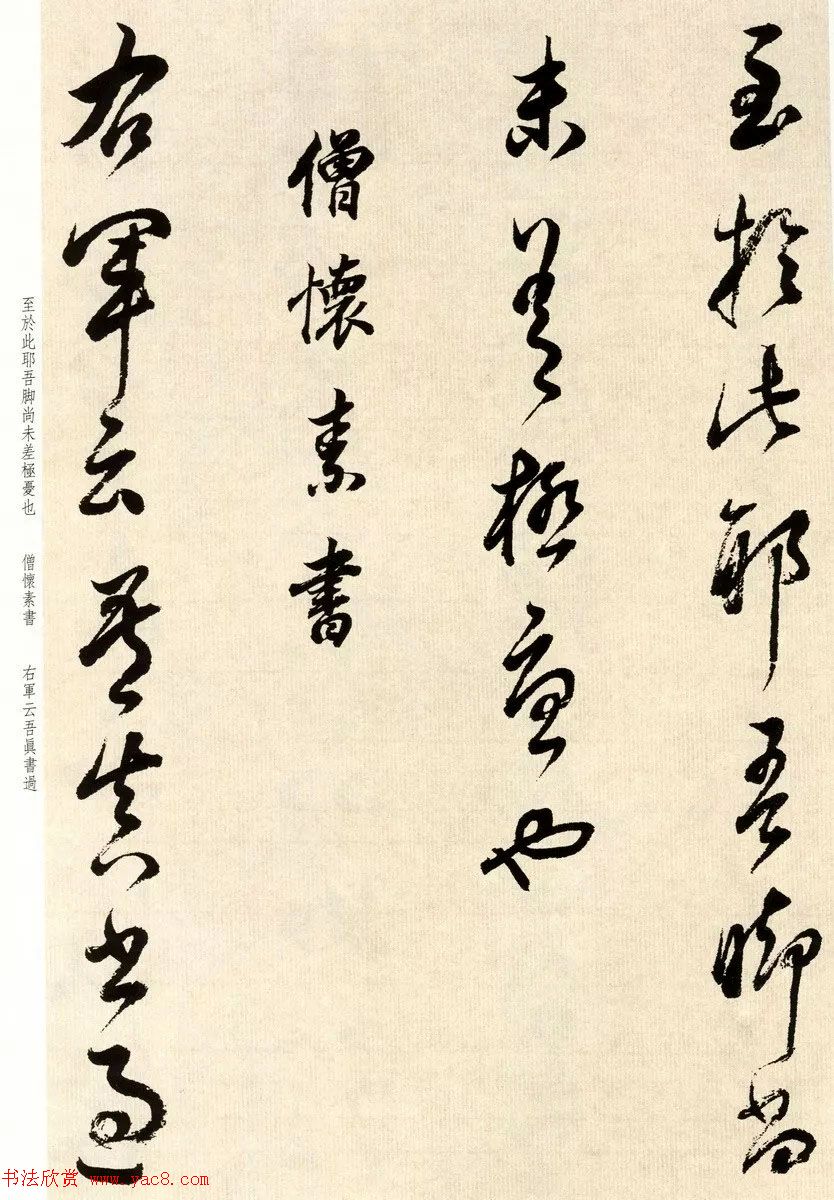 至於此耶吾脚尚
未差極憂也
僧懷素書
右軍云吾真書過
至於此耶吾脚尚未差極憂也　僧懷素書　右軍云吾眞書過
书法欣赏 www.yac8.com